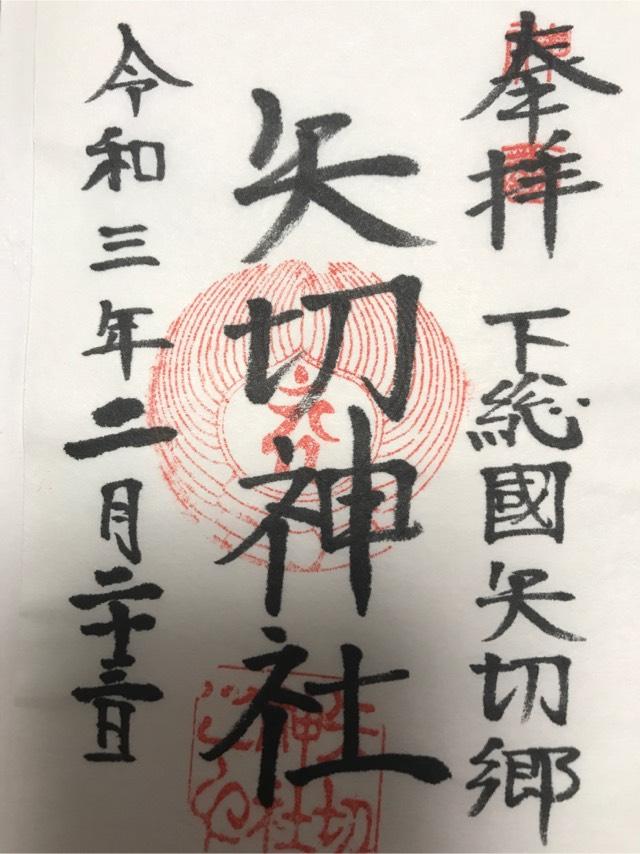 奉拝 下総國矢切郷
矢切神社
令和三年二月二十三日
矢切
神社
之印